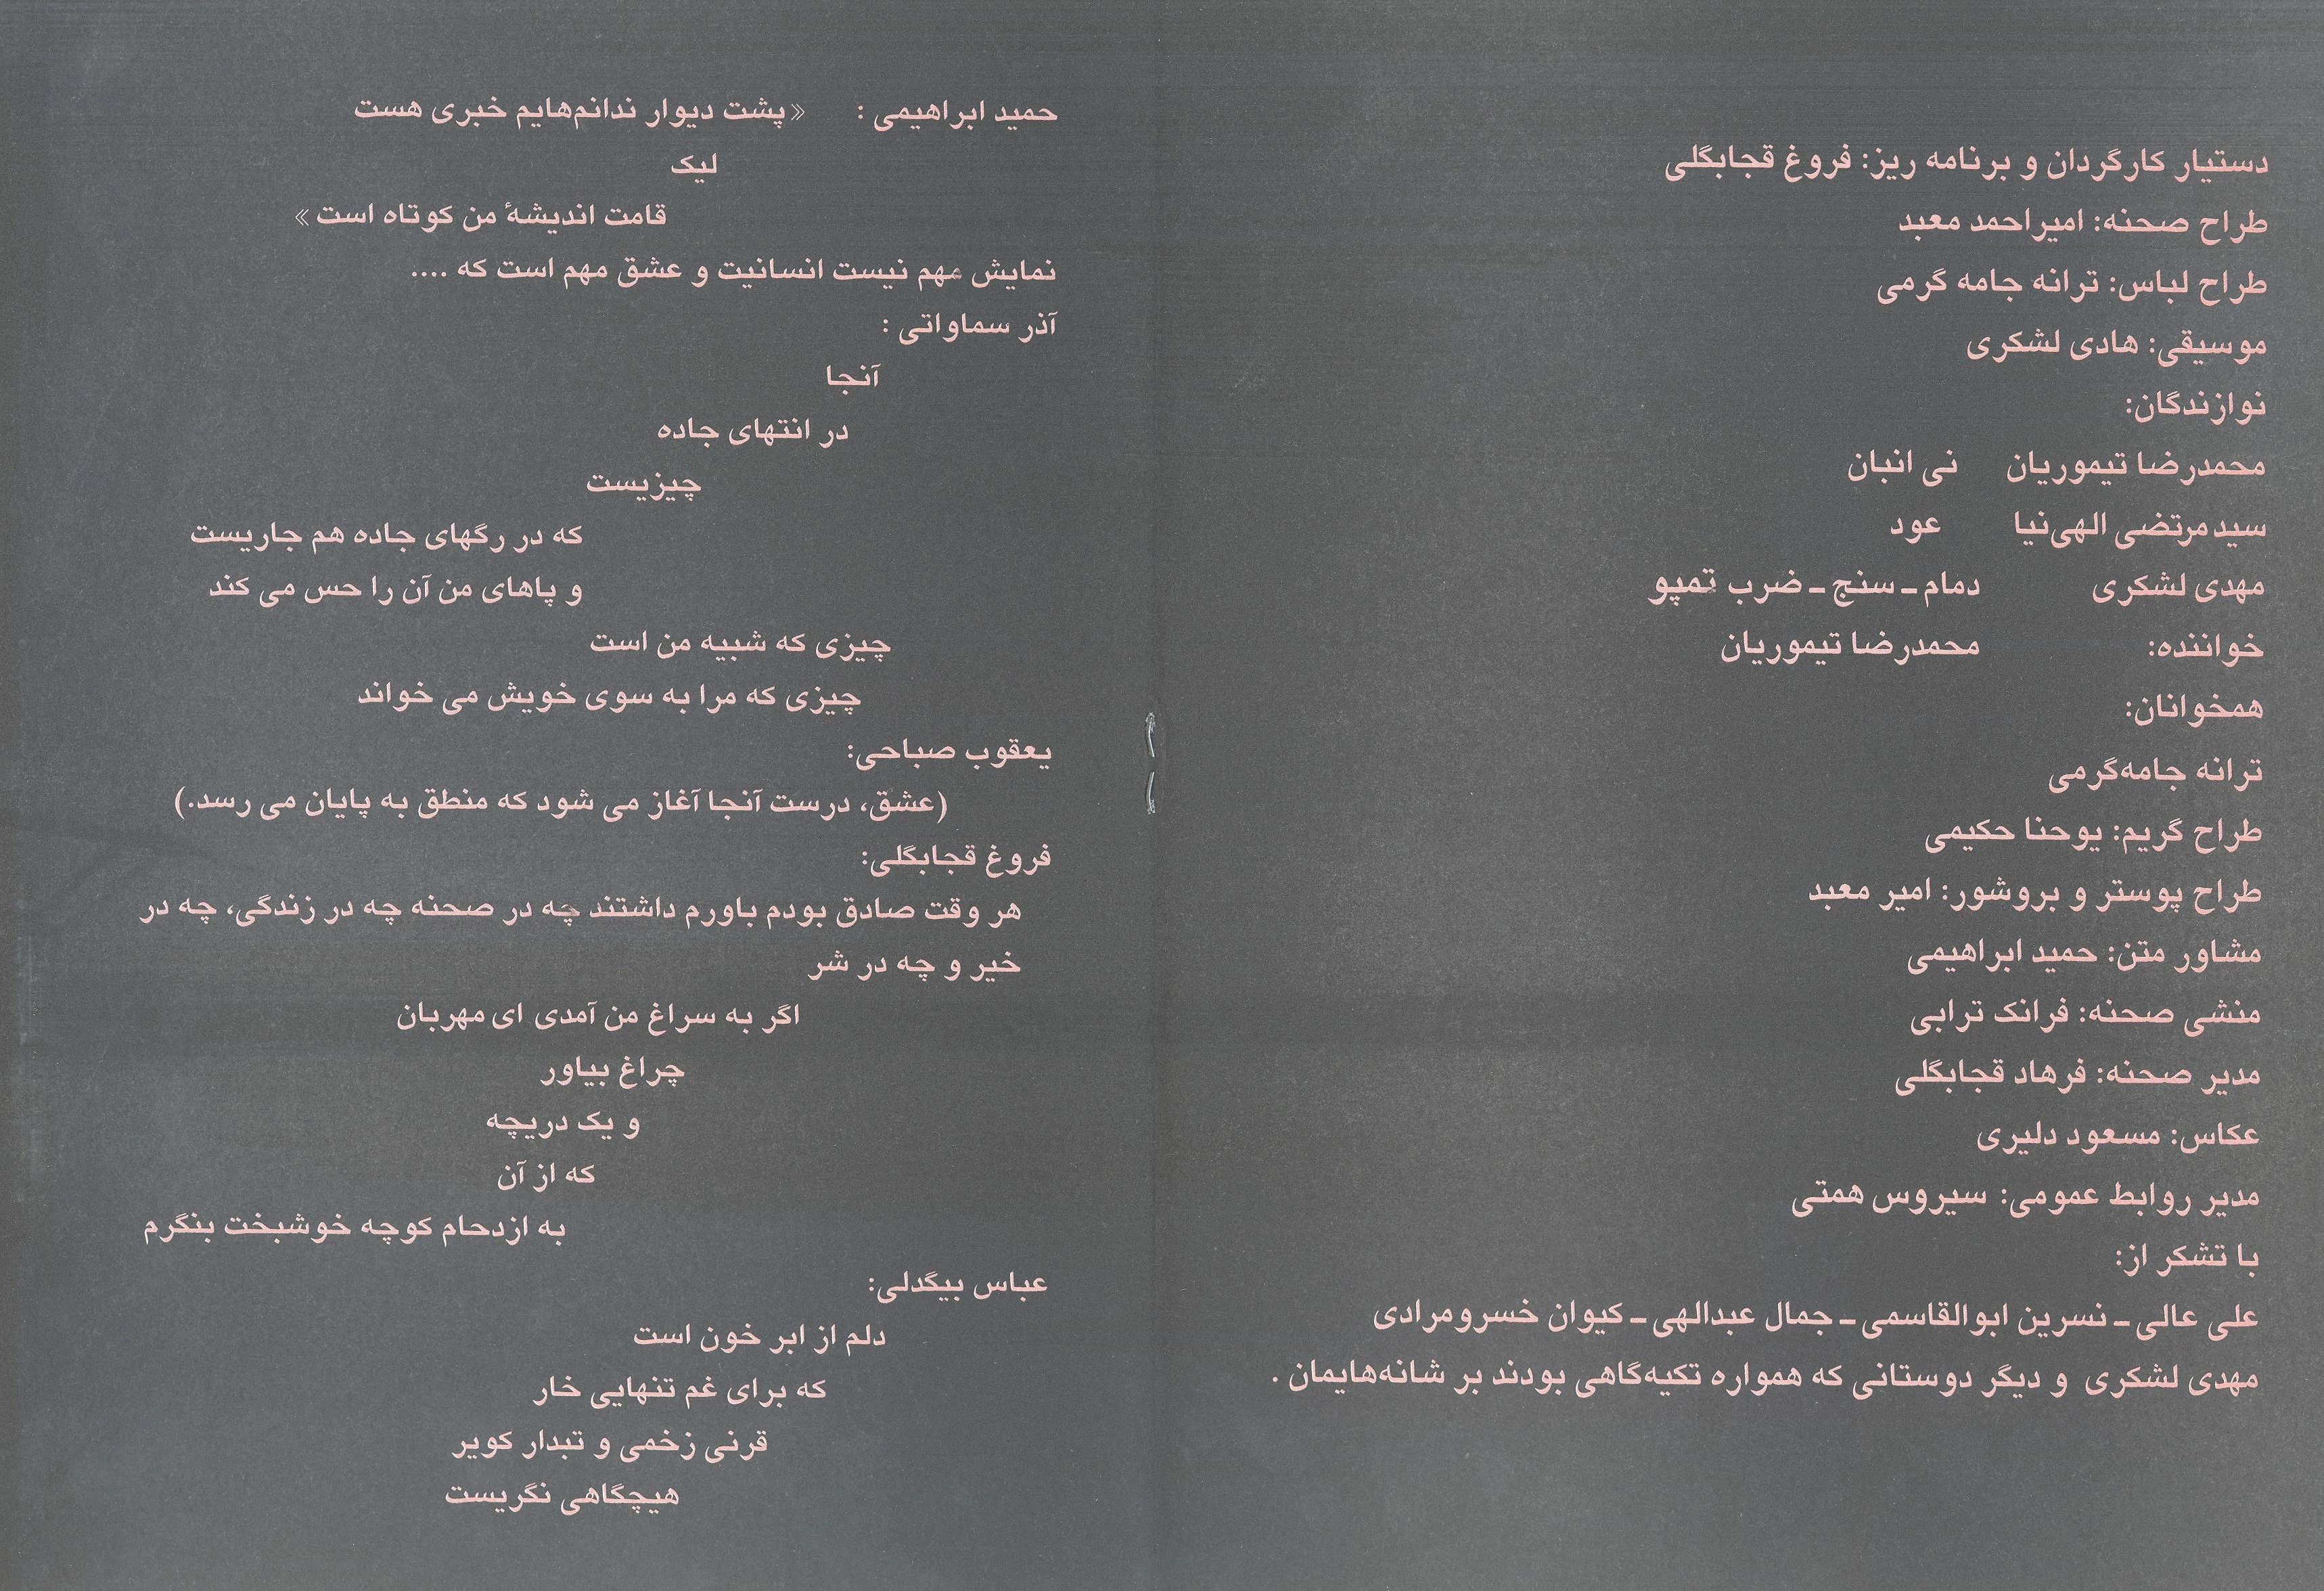 دستیار کارگردان و برنامه ریز: فروغ قجابگلی
طراح صحنه: امیراحمد معبد
طراح لباس: ترانه جامه گرمی
موسیقی: هادی لشکری
نوازندگان:
محمدرضا تیموریان نی انبان
سیدمرتضی الهی‌نیا عود
مهدی لشکری دمام ـ سنج ـ ضرب تمپو
خواننده: محمدرضا تیموریان
همخوانان:
ترانه جامه‌گرمی
طراح گریم: یوحنا حکیمی
طراح پوستر و بروشور: امیر معبد
مشاور متن: حمید ابراهیمی
منشی صحنه: فرانک ترابی
مدیر صحنه: فرهاد قجابگلی
عکاس: مسعود دلیری
مدیر روابط عمومی: سیروس همتی
با تشکر از:
علی عالی ـ نسرین ابوالقاسمی ـ جمال عبدالهی ـ کیوان خسرومرادی
مهدی لشکری و دیگر دوستانی که همواره تکیه‌گاهی بودند بر شانه‌هایمان .
حمید ابراهیمی : «پشت دیوار ندانم‌هایم خبری هست
لیک
قامت اندیشهٔ من کوتاه است»
نمایش مهم نیست انسانیت و عشق مهم است که ....
آذر سماواتی :
آنجا
در انتهای جاده
چیزیست
که در رگهای جاده هم جاریست
و پاهای من آن را حس می کند
چیزی که شبیه من است
چیزی که مرا به سوی خویش می خواند
یعقوب صباحی:
(عشق، درست آنجا آغاز می شود که منطق به پایان می رسد.)
فروغ قجابگلی:
هر وقت صادق بودم باورم داشتند چه در صحنه چه در زندگی، چه در
خیر و چه در شر
اگر به سراغ من آمدی ای مهربان
چراغ بیاور
و یک دریچه
که از آن
به ازدحام کوچه خوشبخت بنگرم
عباس بیگدلی:
دلم از ابر خون است
که برای غم تنهایی خار
قرنی زخمی و تبدار کویر
هیچگاهی نگریست